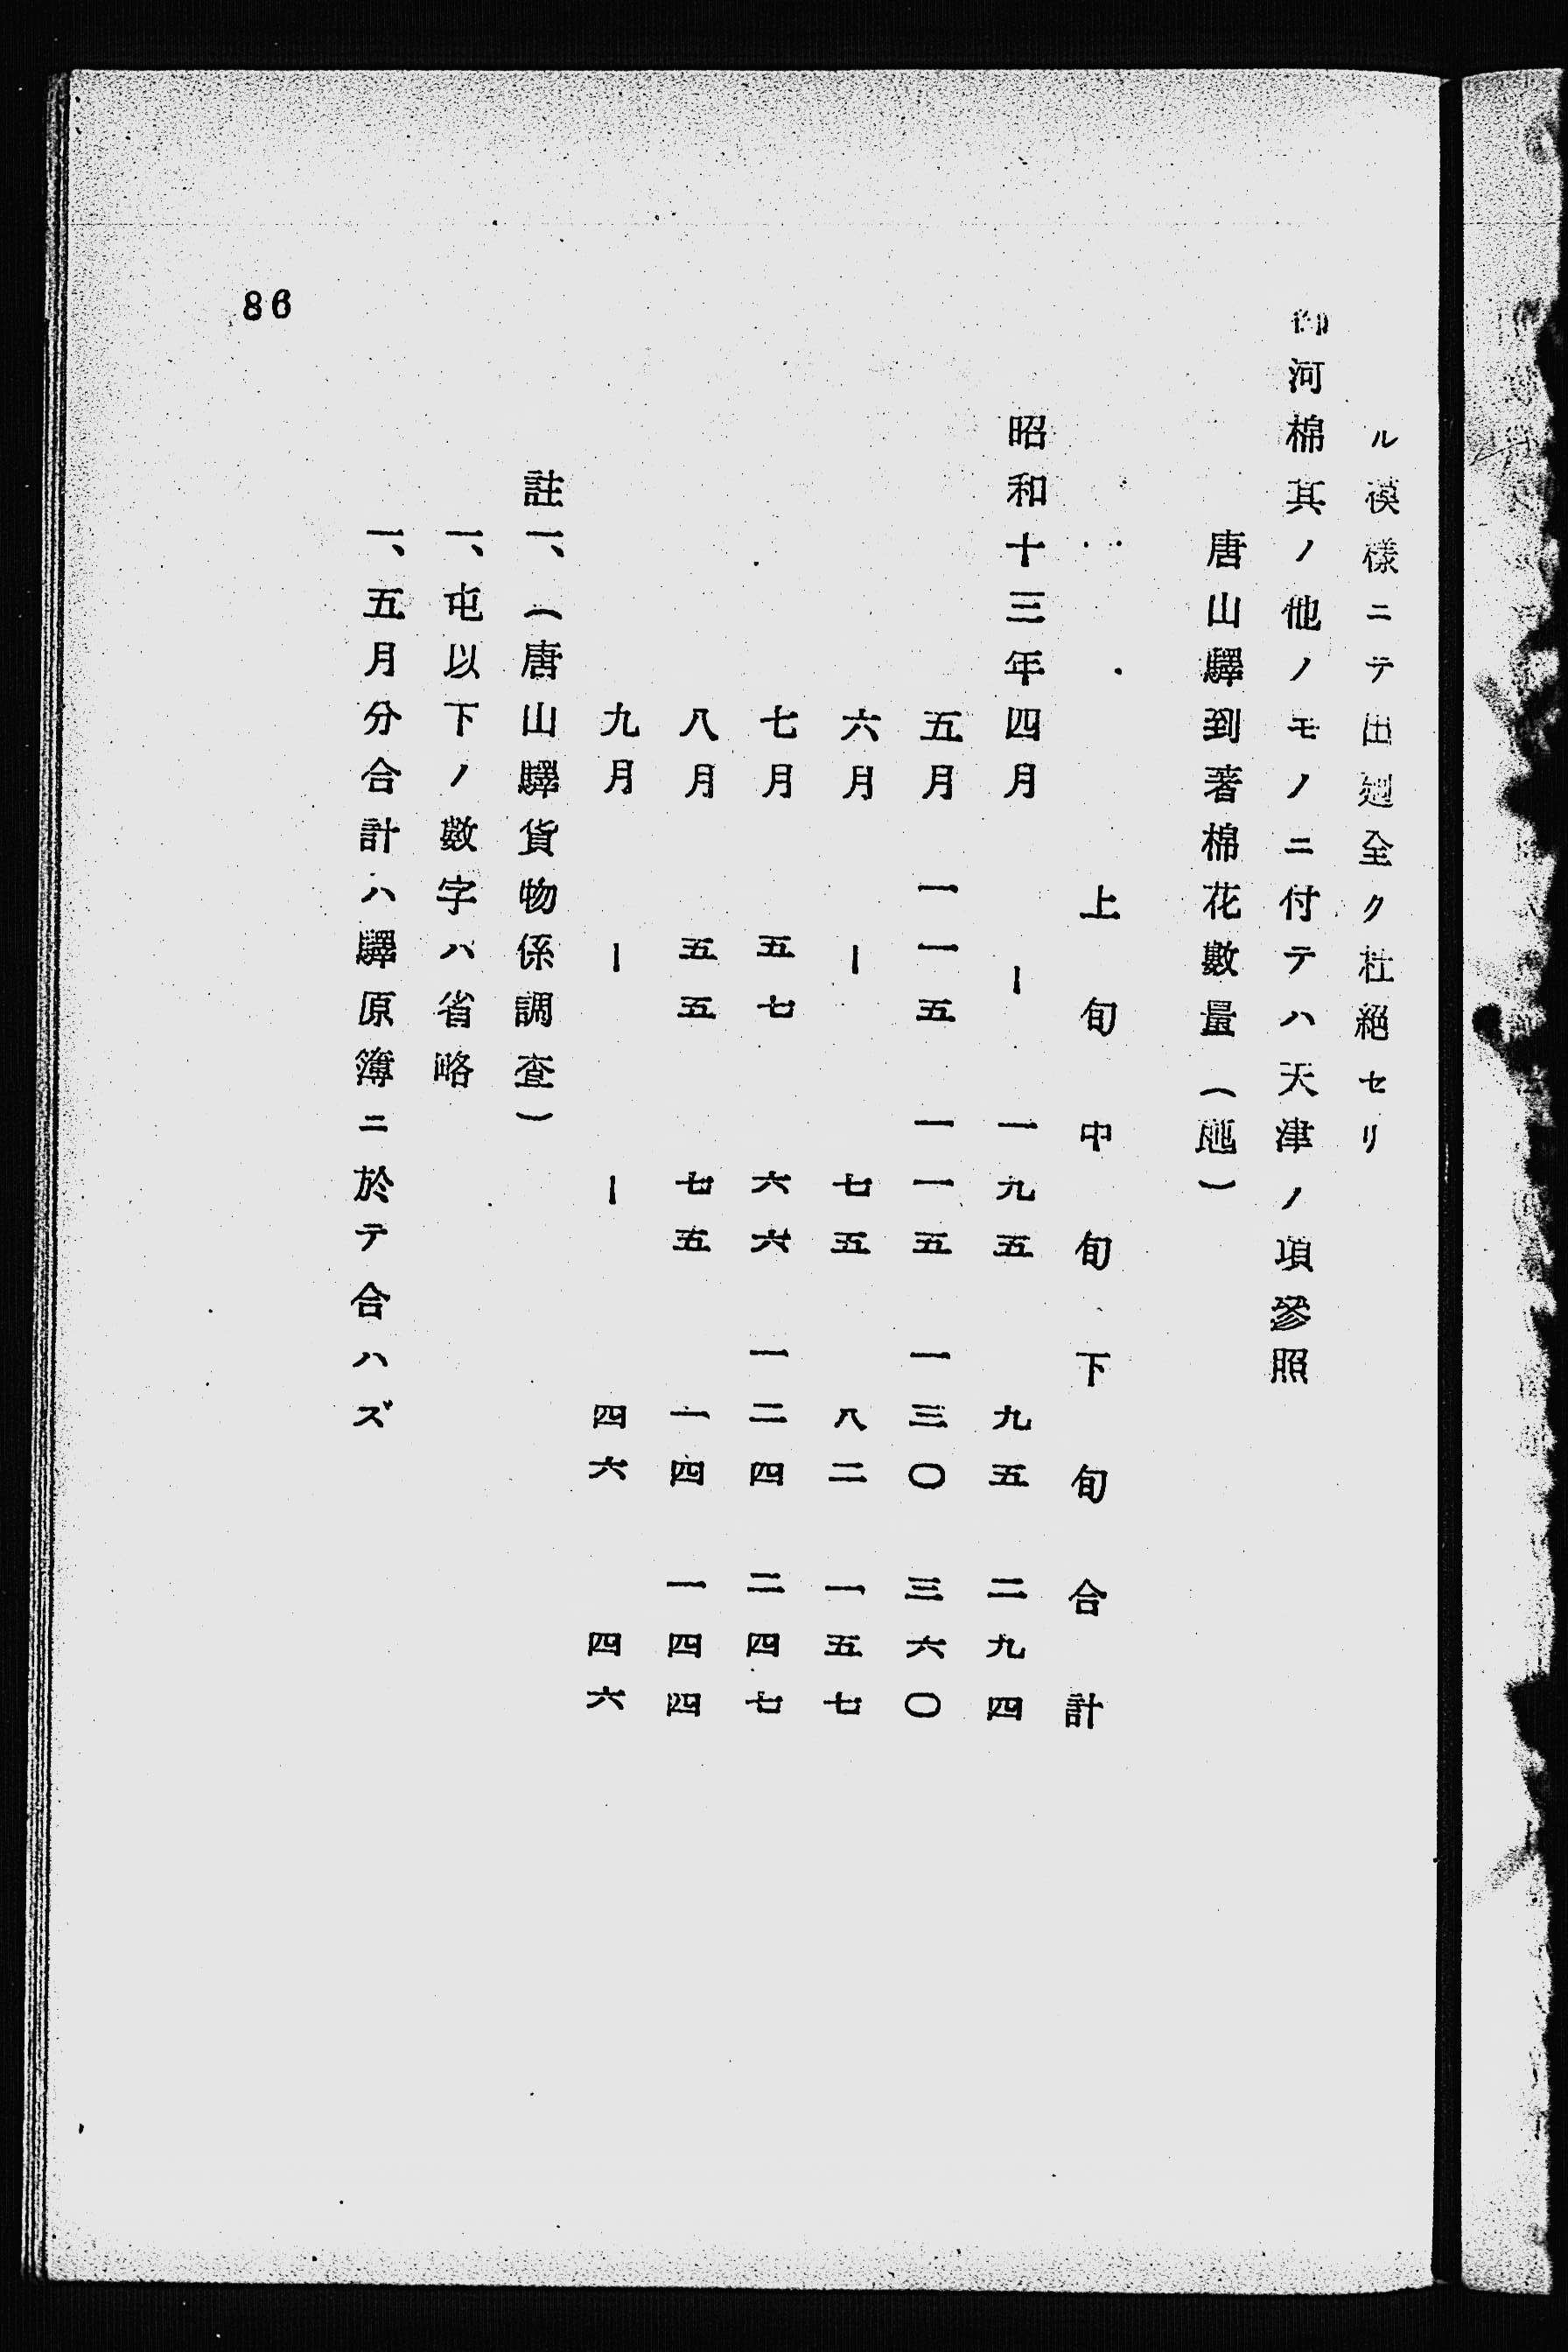 ル模樣ニテ出廻全ク杜絕セリ
御河棉其ノ他ノモノニ付テハ天津ノ項參照
唐山驛到著棉花數量（瓲）
上旬 中旬 下旬 合計
昭和十三年四月 ー 一九五 九五 二九四
五月 一一五 一一五 一三〇 三六〇
六月 ー 七五 八二 一五七
七月 五七 六六 一二四 二四七
八月 五五 七五 一四 一四四
九月 ー ー 四六 四六
註一、（唐山驛貨物係調査）
一、屯以下ノ數字ハ省略
一、五月分合計ハ驛原簿ニ於テ合ハズ
86